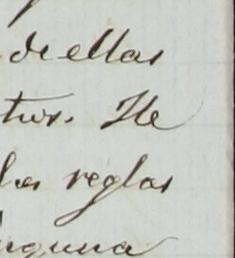 de ellas
tivo. He
las reglas
inguna